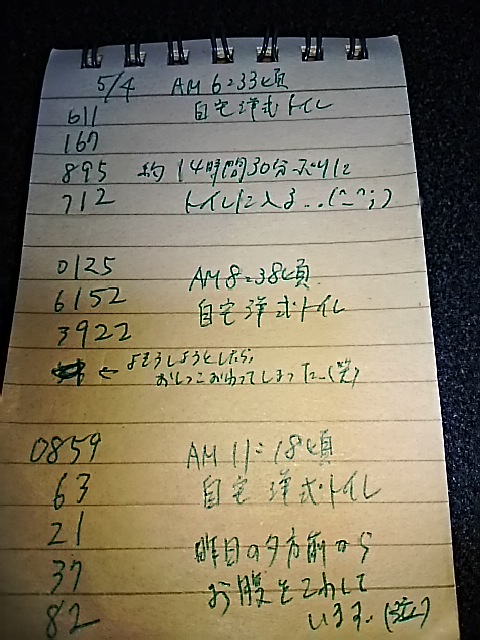 5/4 AM 6:33頃
611 自宅洋式トイレ
167
895 約14時間30分ぶりに
712 トイレに入る…(^_^;)
0125 AM8:38頃
6152 自宅洋式トイレ
3922
← よそうしようとしたら,
おしっこおわってしまった…(笑)
0859 AM 11:18頃
63 自宅洋式トイレ
21
37 昨日の夕方前から
82 お腹をこわして
います.(泣)